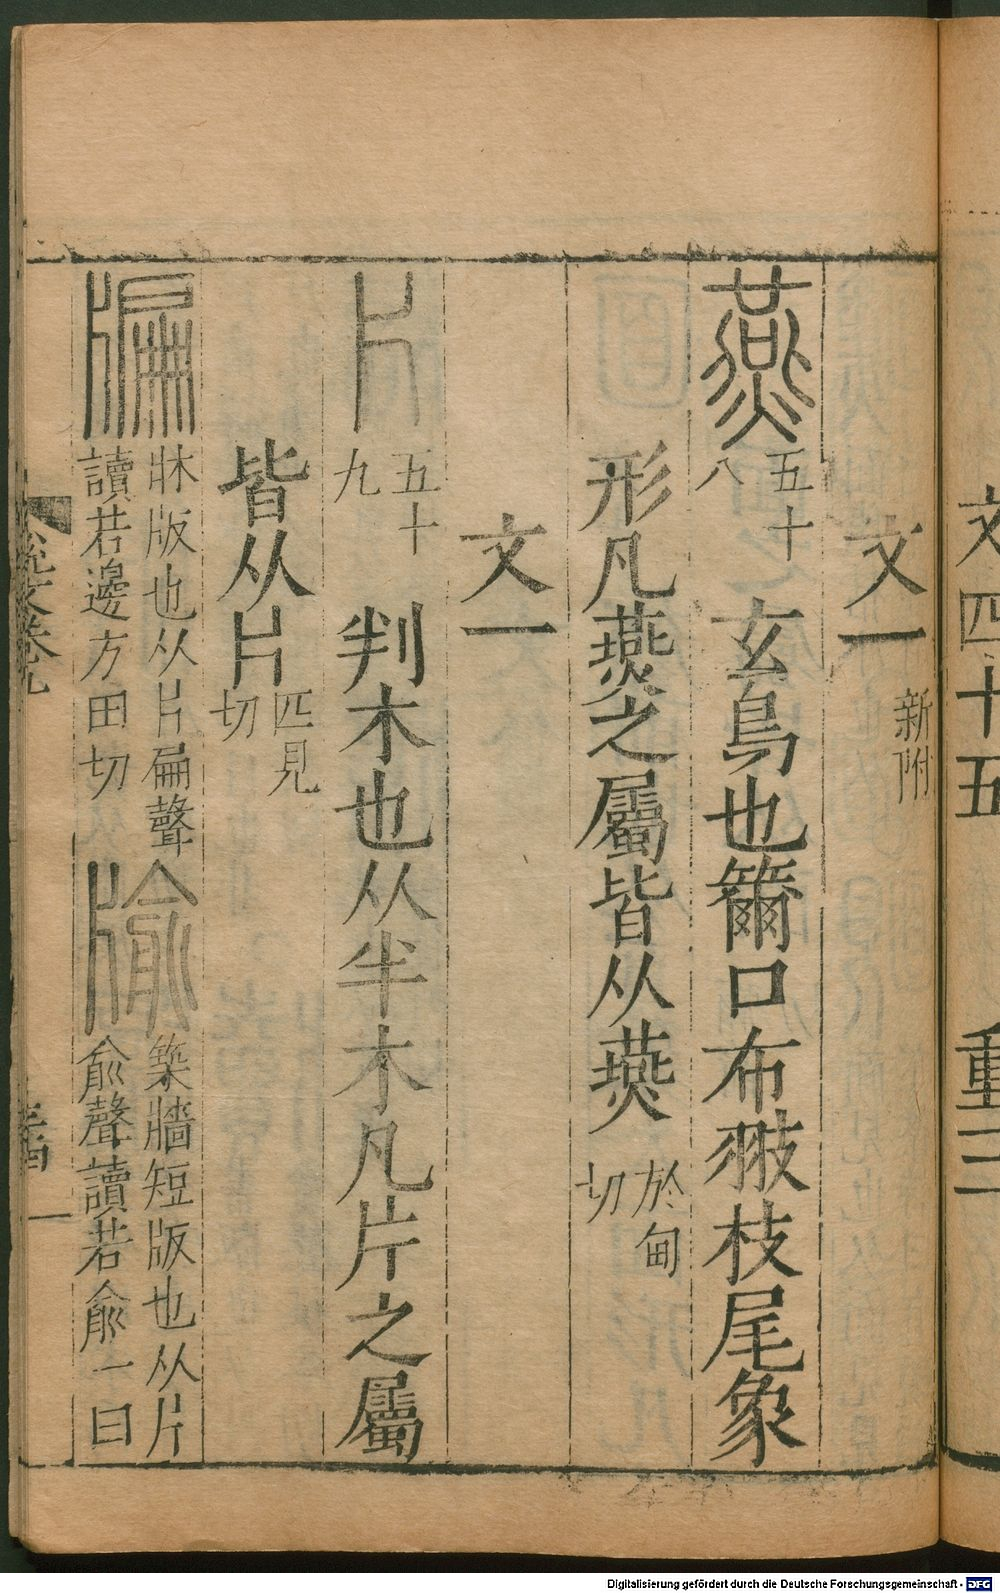 文四十五　重三
文一　新附
燕　五十八　玄鳥也籋口布翄枝尾象
形凡燕之屬皆从燕　於甸切
文一
片　五十九　判木也从半木凡片之屬
皆从片　匹見切
牑　牀版也从片扁聲讀若邊方田切　牏　築牆短版也从片俞聲讀若俞一曰
說文卷九
一
Digitalisierung gefördert durch die Deutsche Forschungsgemeinschaft - DFG